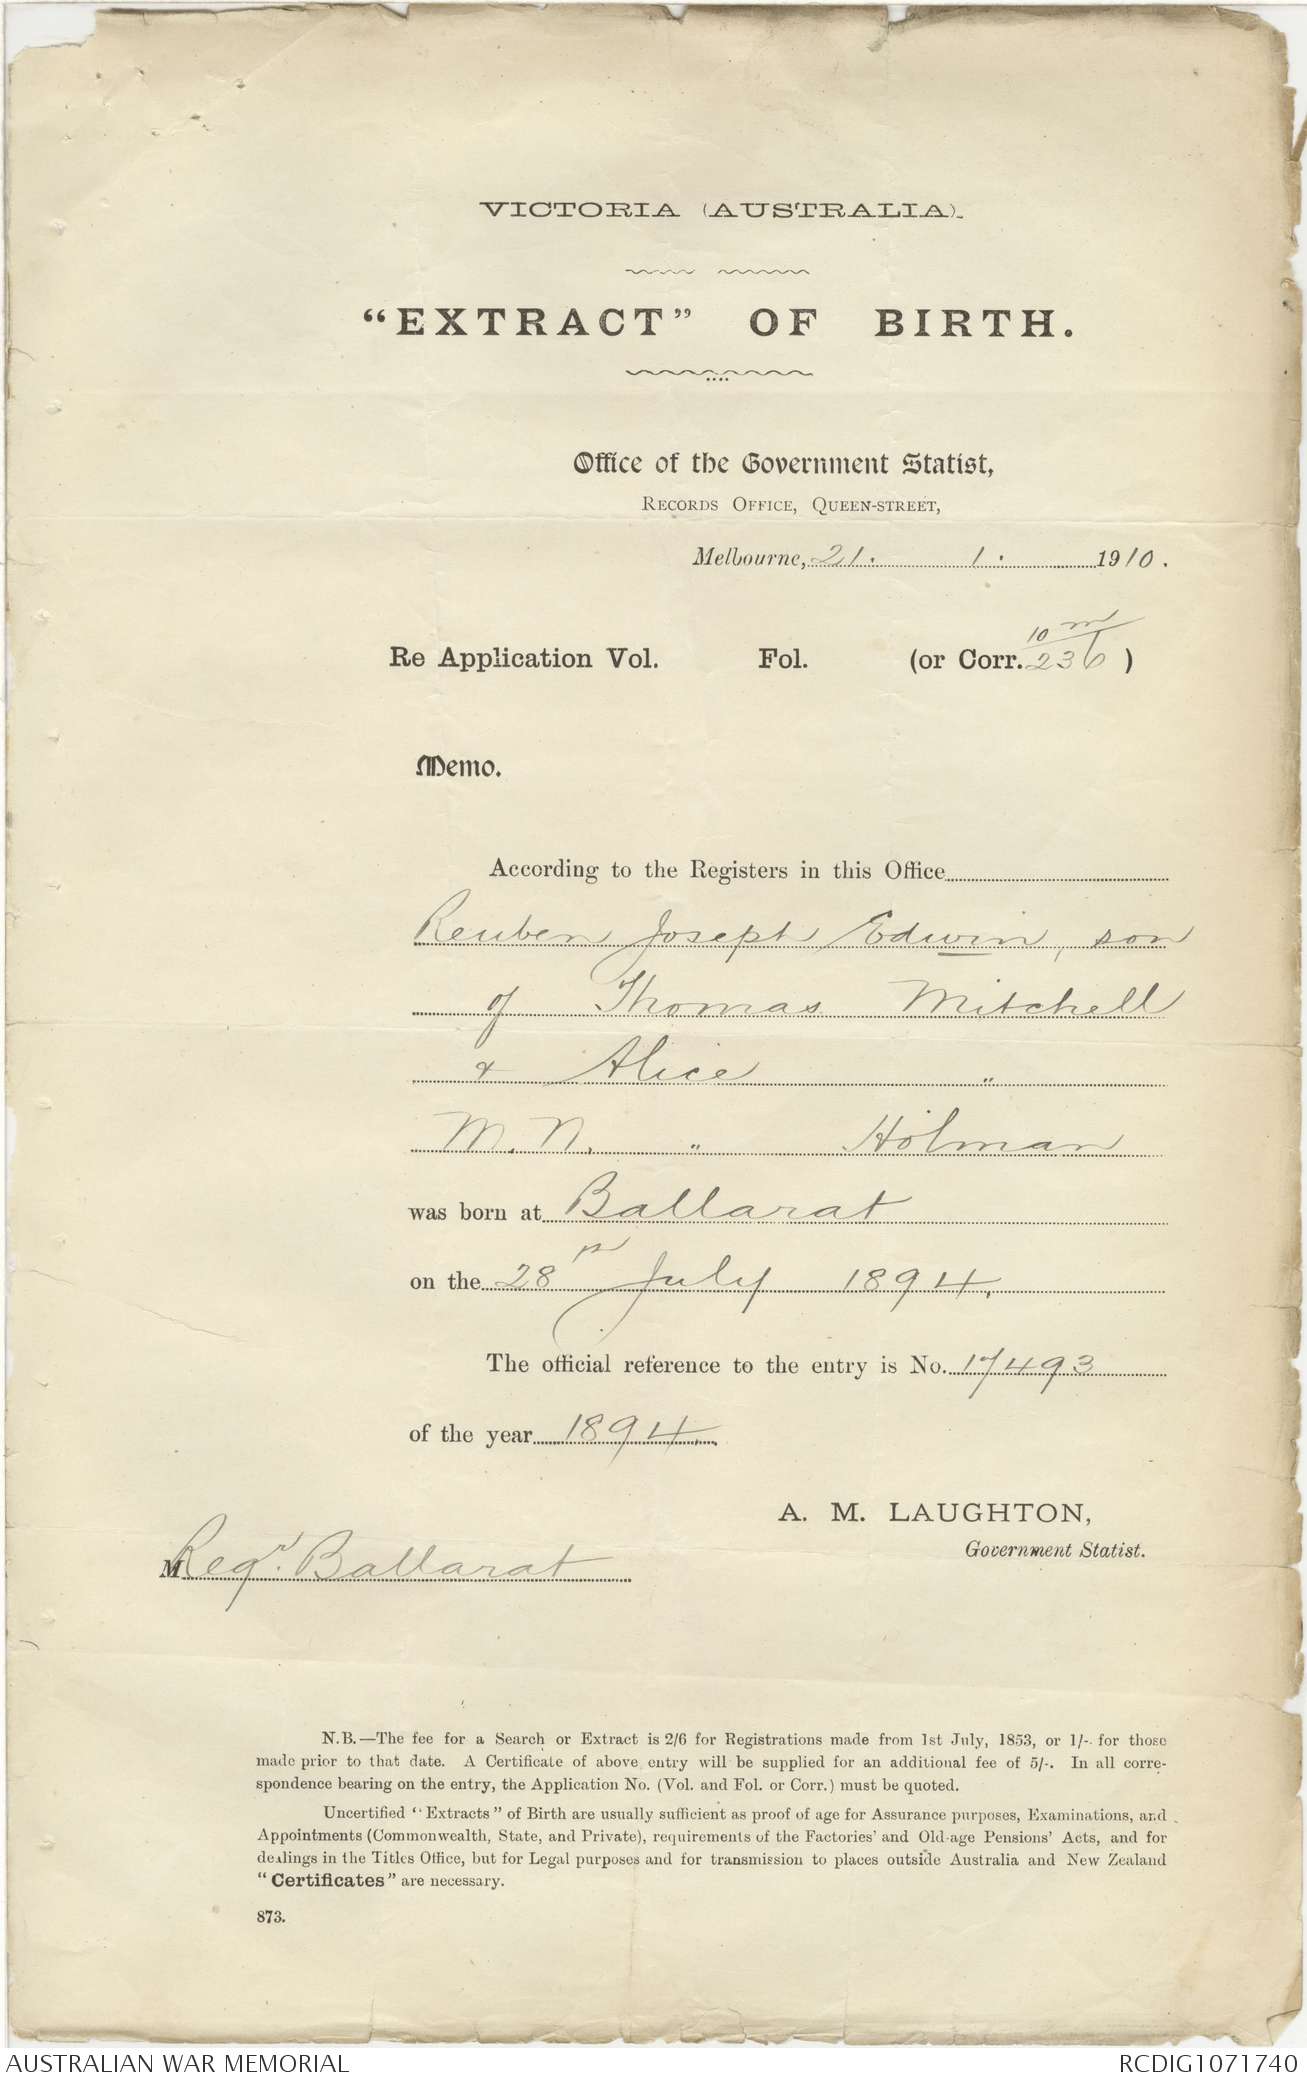 VICTORIA (AUSTRALIA).
"EXTRACT" OF BIRTH.
Office of the Government Statist,
RECORDS OFFICE, QUEEN-STREET,
Melbourne, 21. 1. 1910.
10 m
Re Application Vol. Fol. (or Corr. 236 )
Memo.
According to the Registers in this Office
Reuben Joseph Edwin, son
of Thomas Mitchell
& Alice "
M. N. " Holman
was born at Ballarat
on the 28th July 1894.
The official reference to the entry is No. 17493
of the year 1894.
A. M. LAUGHTON,
Government Statist.
M Regr. Ballarat
N.B.—The fee for a Search or Extract is 2/6 for Registrations made from 1st July, 1853, or 1/- for those
made prior to that date. A Certificate of above entry will be supplied for an additional fee of 5/-. In all corre-
spondence bearing on the entry, the Application No. (Vol. and Fol. or Corr.) must be quoted.
Uncertified "Extracts" of Birth are usually sufficient as proof of age for Assurance purposes, Examinations, and
Appointments (Commonwealth, State, and Private), requirements of the Factories' and Old-age Pensions' Acts, and for
dealings in the Titles Office, but for Legal purposes and for transmission to places outside Australia and New Zealand
"Certificates" are necessary.
873.
AUSTRALIAN WAR MEMORIAL
RCDIG1071740